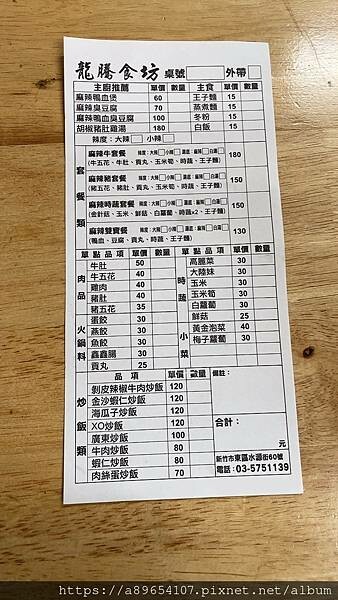 龍騰食坊 桌號 外帶
主廚推薦 單價 數量 主食 單價 數量
麻辣鴨血煲 60 王子麵 15
麻辣臭豆腐 70 蒸煮麵 15
麻辣鴨血臭豆腐 100 冬粉 15
胡椒豬肚雞湯 180 白飯 15
辣度：大辣 小辣
套餐類
麻辣牛套餐 辣度：大辣 小辣 湯底：麻辣 白湯 180
(牛五花、牛肚、貢丸、玉米筍、時蔬、王子麵)
麻辣豬套餐 辣度：大辣 小辣 湯底：麻辣 白湯 150
(豬五花、豬肚、貢丸、玉米筍、時蔬、王子麵)
麻辣時蔬套餐 辣度：大辣 小辣 湯底：麻辣 白湯 150
(金針菇、玉米、鮮菇、白蘿蔔、時蔬x2、王子麵)
麻辣雙寶餐 辣度：大辣 小辣 湯底：麻辣 白湯 130
(鴨血、豆腐、貢丸、時蔬、王子麵)
單點品項 單價 數量 單點品項 單價 數量
肉品
牛肚 50
牛五花 40
雞肉 40
豬肚 40
豬五花 35
火鍋料
蛋餃 30
燕餃 30
魚餃 30
鑫鑫腸 30
貢丸 25
時蔬
高麗菜 30
大陸妹 30
玉米 30
玉米筍 30
白蘿蔔 30
鮮菇 25
小菜
黃金泡菜 40
梅子蘿蔔 30
品項 單價 數量 備註：
炒飯類
剝皮辣椒牛肉炒飯 120
金沙蝦仁炒飯 120
海瓜子炒飯 120
XO炒飯 120
廣東炒飯 100
牛肉炒飯 80
蝦仁炒飯 80
肉絲蛋炒飯 70
合計：
元
新竹市東區水源街60號
電話：03-5751139
https://a89654107.pixnet.net/album